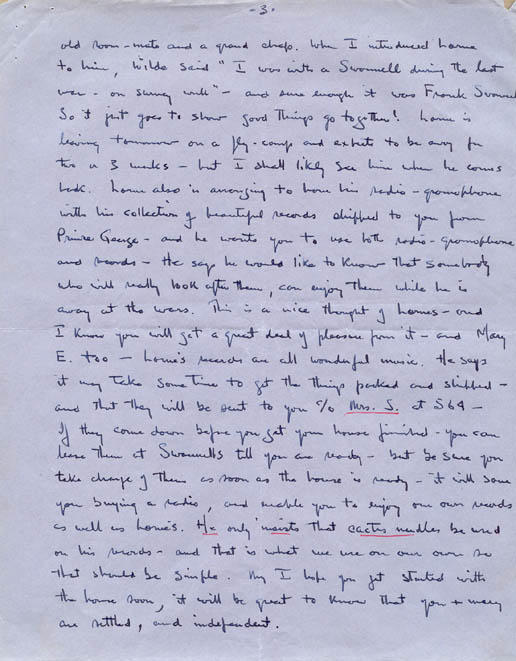 - 3 -
old room-mate and a grand chap. When I introduced Lorne
to him, Wilde said "I was with a Swannell during the last
war - on survey work" - and sure enough it was Frank Swannell
So it just goes to show good things go together! Lorne is
leaving tomorrow on a fly-camp and expects to be away for
two or 3 weeks - but I shall likely see him when he comes
back. Lorne also is arranging to have his radio-gramophone
with his collection of beautiful records shipped to you from
Prince George - and he wants you to use both radio-gramophone
and records - He says he would like to know that somebody
who will really look after them, can enjoy them while he is
away at the wars. This is a nice thought of Lorne's - and
I know you will get a great deal of pleasure from it - and Mary
E. too - Lorne's records are all wonderful music. He says
it may take some time to get the things packed and shipped -
and that they will be sent to you c/o Mrs. S. at 564 -
If they come down before you get your house finished - you can
leave them at Swannells till you are ready - but be sure you
take charge of them as soon as the house is ready - it will save
you buying a radio, and enable you to enjoy our own records
as well as Lorne's. He only insists that cactus needles be used
on his records - and that is what we use on our own so
that should be simple. My I hope you get started with
the house soon, it will be great to know that you + Mary
are settled, and independent.